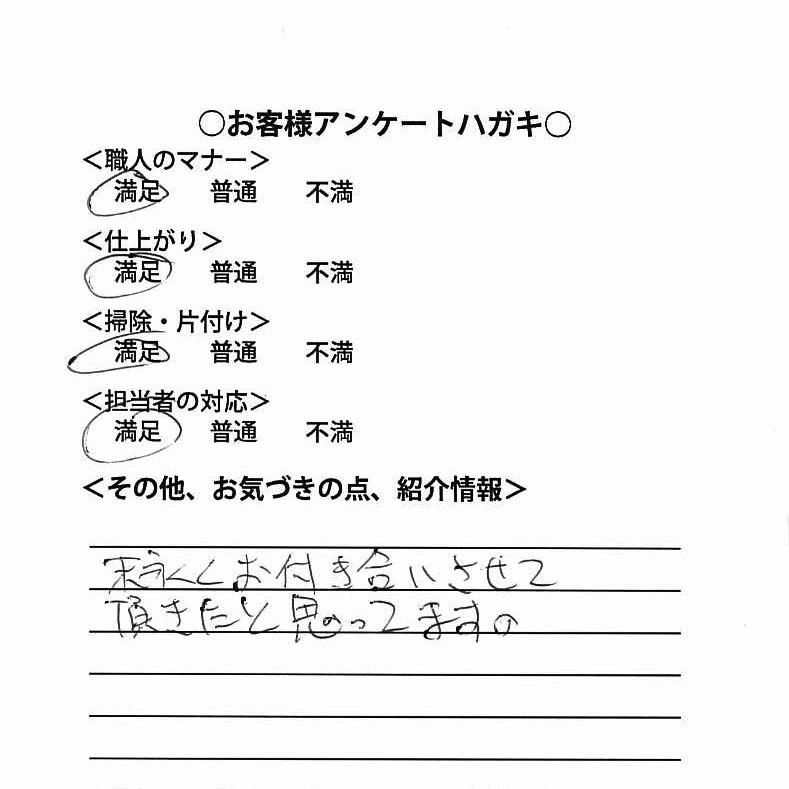 ○お客様アンケートハガキ○
＜職人のマナー＞
満足 普通 不満
＜仕上がり＞
満足 普通 不満
＜掃除・片付け＞
満足 普通 不満
＜担当者の対応＞
満足 普通 不満
＜その他、お気づきの点、紹介情報＞
末永くお付き合いさせて
頂きたと思ってます。